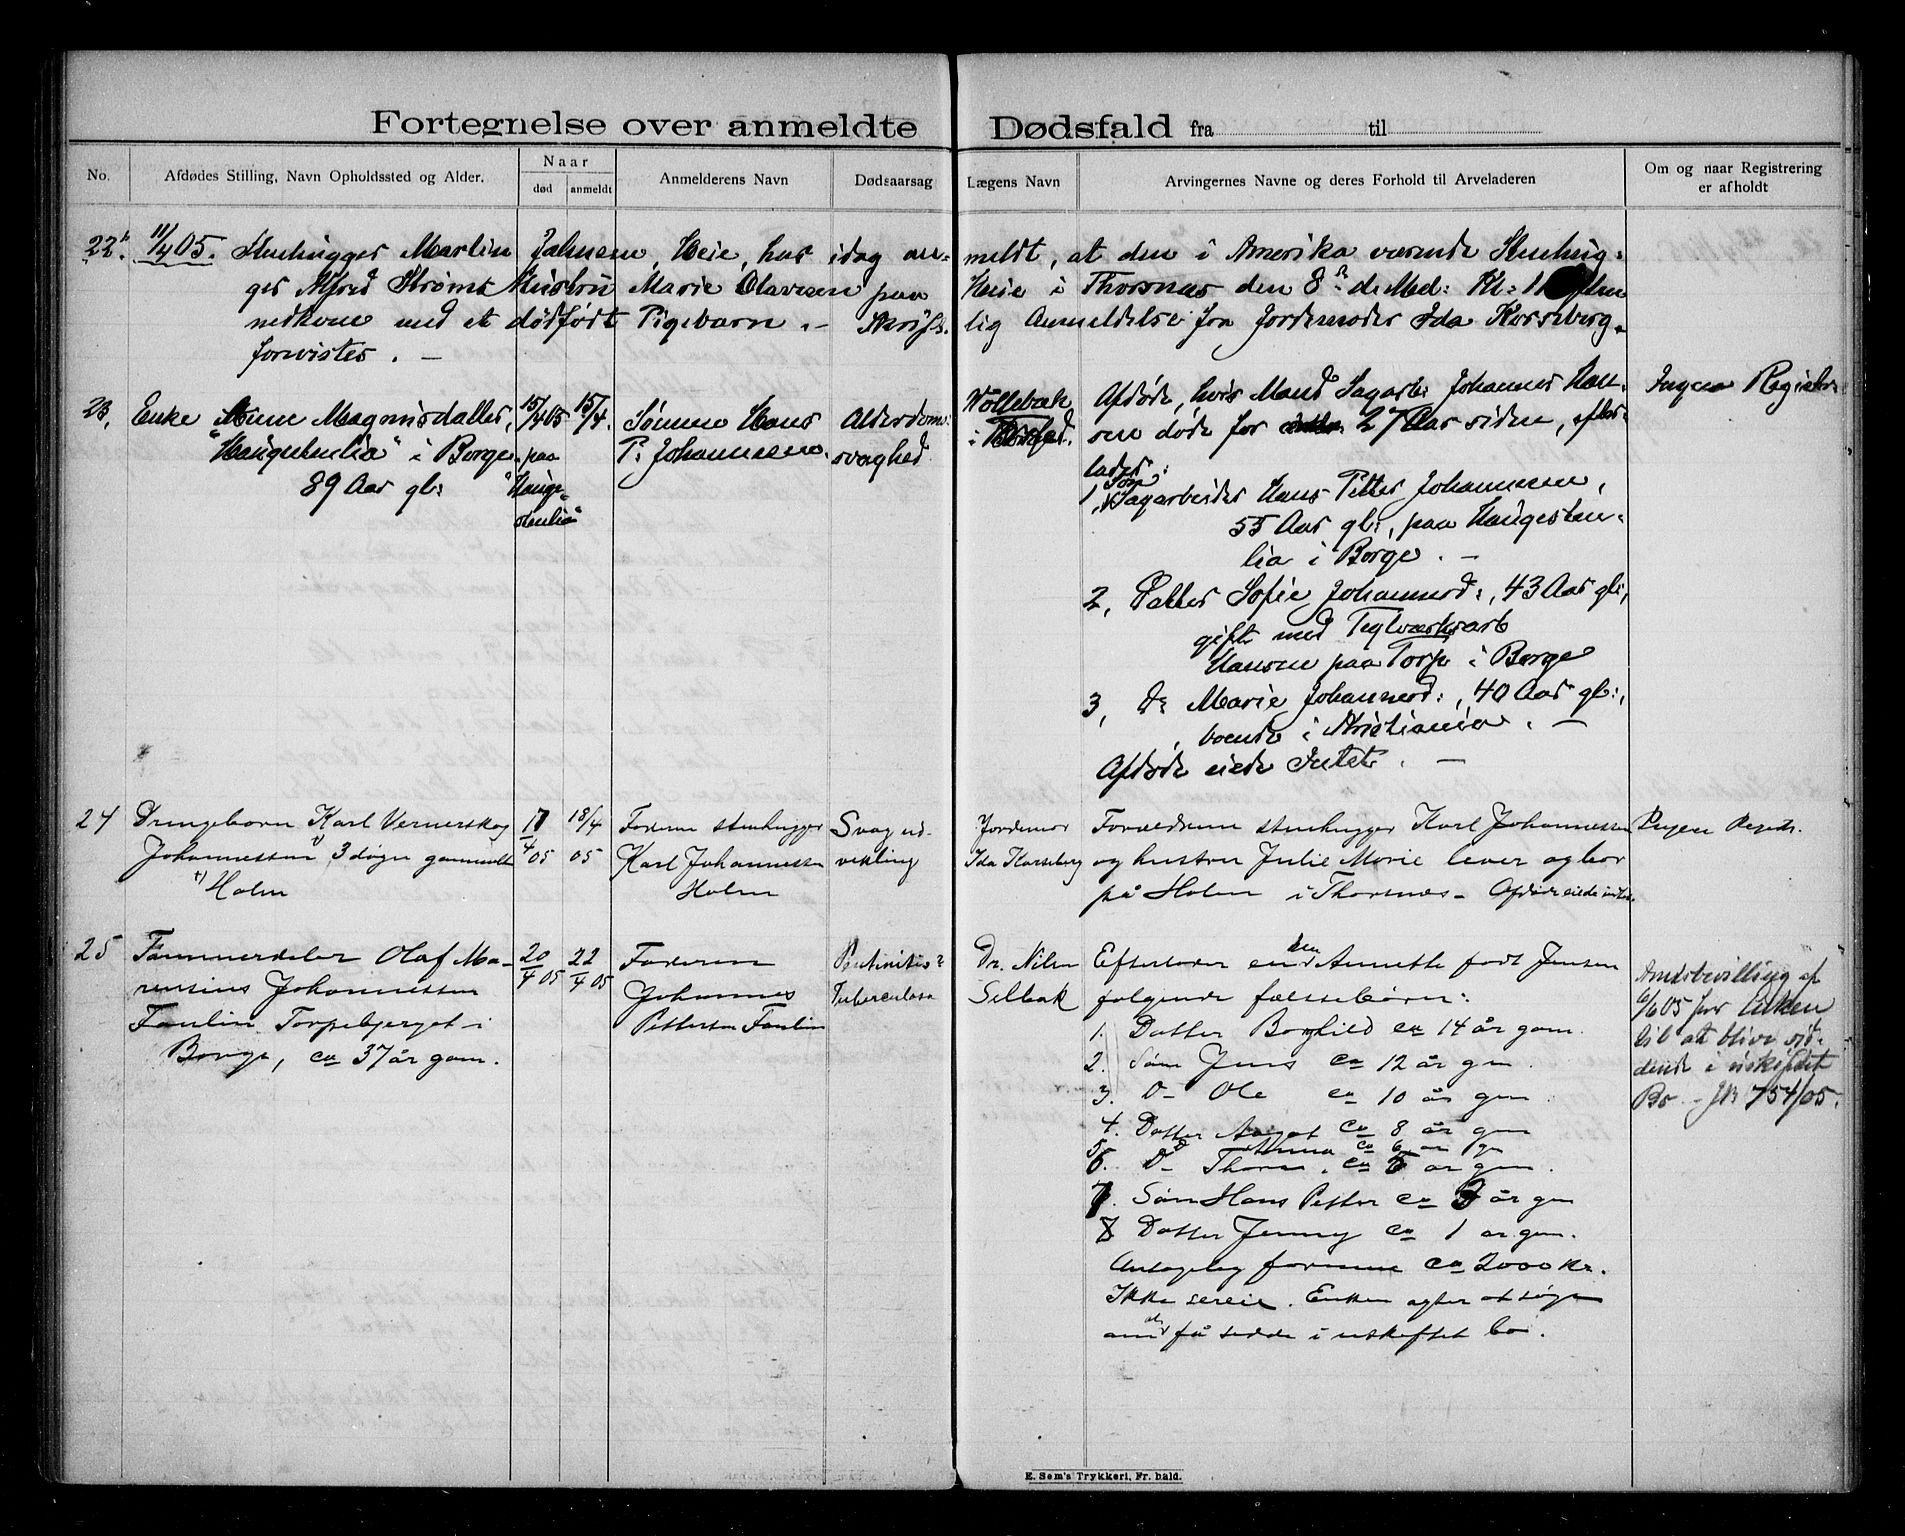 Fortegnelse over anmeldte Dødsfald fra til
No.
Afdødes Stilling, Navn Opholdssted og Alder.
Naar
død
anmeldt
Anmelderens Navn
Dødsaarsag
Lægens Navn
Arvingernes Navne og deres Forhold til Arveladeren
Om og naar Registrering
er afholdt
22b. 11/4 05. Stenhugger Martin Johnsen, Heie, har idag an-
meldt, at den i Amerika værende Stenhug-
ger Alfred Strøms Hustru Marie Olavesen paa
Heie i Thorsnæs den 8de ds Med: Kl: 11 Eften
nedkom med et dødfødt Pigebarn. – Skrift-
lig Anmeldelse fra Jordemoder Ida Korseberg
forevistes. –
23.
Enke Anne Magnusdatter,
"Haugstenlia" i Borge
89 Aar gl:
15/4 05
paa
"Hauge-
stenlia"
15/4.
Sønnen Hans
P. Johannessen.
Alderdoms-
svaghed
Vøllebæk
i
Afdøde, hvis Mand Sagarb: Johannes Han-
sen døde for 27 Aar siden, efter-
lader:
1, Søn Sagarbeider Hans Petter Johannessen,
55 Aar gl:, paa Haugesten-
lia i Borge. –
2, Datter Sofie Johannesd:, 43 Aar gl:,
gift med Teglværksarb
Hansen paa Torp i Borge
3, Do Marie Johannesd:, 40 Aar gl:,
boende i Kristiania. –
Afdøde eiede Intet. –
Ingen Registr:
24
Drengebarn Karl Vernerskog
Johannessen 3 døgn gammelt
Holm
17/4 05
18/4 05
Faderen stenhugger
Karl Johannessen
Holm
Svag ud-
vikling
Jordemor
Ida Korseberg
Forældrene stenhugger Karl Johannessen
og hustru Julie Marie lever og bor
på Holm i Thorsnæs – Afdøde eiede intet.
Ingen Regists.
25
Tømmerdeler Olaf Ma-
rensius Johannessen
Faulin Torpebjerget i
Borge, ca 37 år gam.
20/4 05
22/4 05
Faderen
Johannes
Petterson Faulin
Tuberculosa
Dr. Nilsen
Selbak
Efterlader enken Annette født Jensen
følgende fællesbørn:
1. Datter Borghild ca 14 år gam.
2. Søn Jens ca 12 år gm.
3. Do Ole ca 10 år gm.
4. Datter Aagot ca 8 år gm
5. Do Anna ca 6 år gm
6. Do Thora. ca 5 år gm.
7. Søn Hans Petter ca 3 år gm
8 Datter Jenny ca 1 år gm.
Antagelig formue ca 2000 kr.
Ikke særeie. Enken agter at søge
om at få sidde i uskiftet bo.
Amtsbevilling af
6/6 05 for Enken
til at blive sid-
dende i uskiftet
Bo. – JN 754/05.
E. Sem's Trykkeri, Fr. hald.